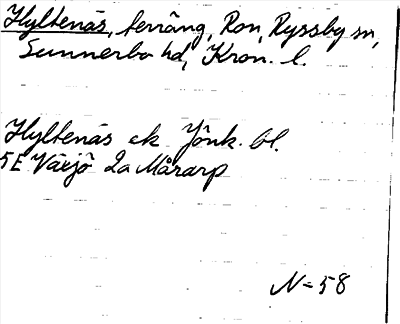 Hyltenäs, terräng, Ron, Ryssby sn,
Sunnerbo hd, Kron. l.
Hyltenäs ek Jönk. bl.
5E Växjö 2a Mårarp
N-58